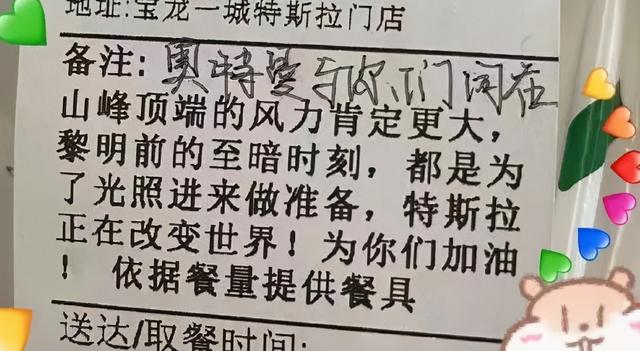 地址:宝龙一城特斯拉门店
备注: 奥特曼与你们同在
山峰顶端的风力肯定更大，
黎明前的至暗时刻，都是为
了光照进来做准备，特斯拉
正在改变世界！为你们加油
！ 依据餐量提供餐具
送达/取餐时间: